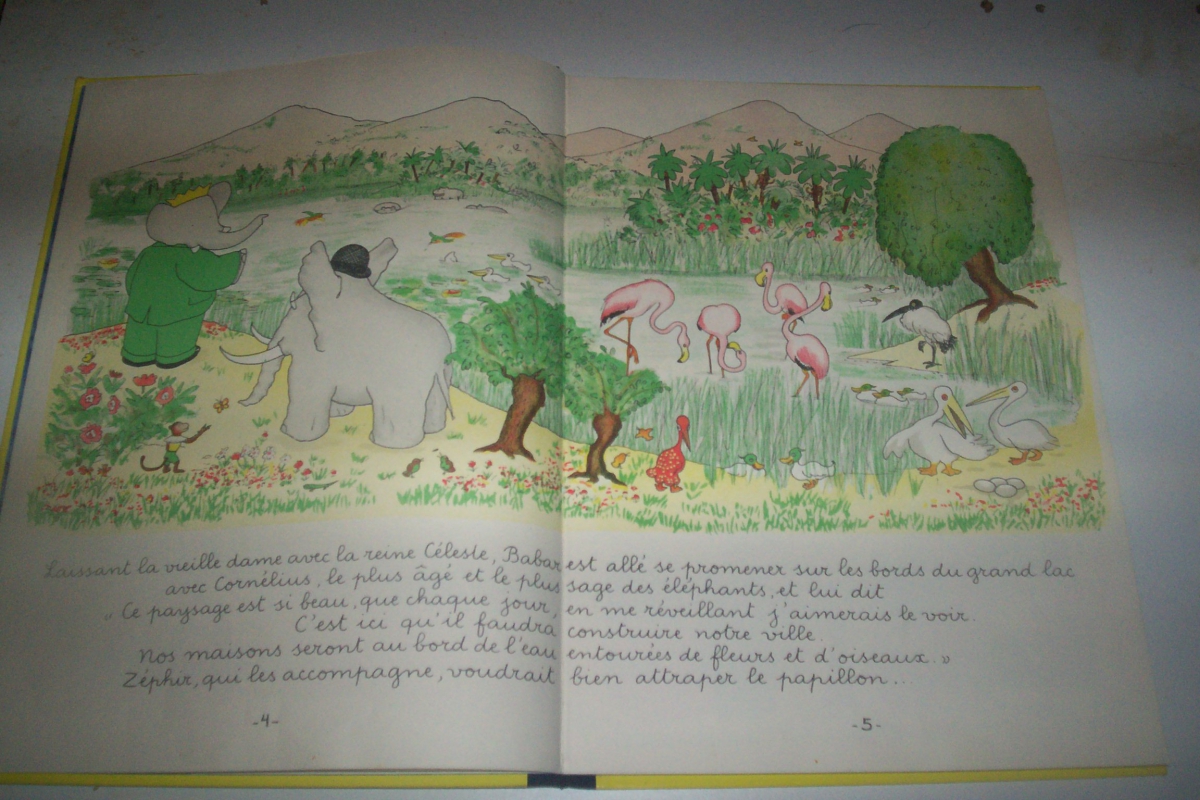 Laissant la vieille dame avec la reine Céleste, Babar est allé se promener sur les bords du grand lac
avec Cornélius, le plus âgé et le plus sage des éléphants, et lui dit
« Ce paysage est si beau, que chaque jour, en me réveillant j'aimerais le voir.
C'est ici qu'il faudra construire notre ville.
Nos maisons seront au bord de l'eau entourées de fleurs et d'oiseaux. »
Zéphir, qui les accompagne, voudrait bien attraper le papillon...
-4-
-5-